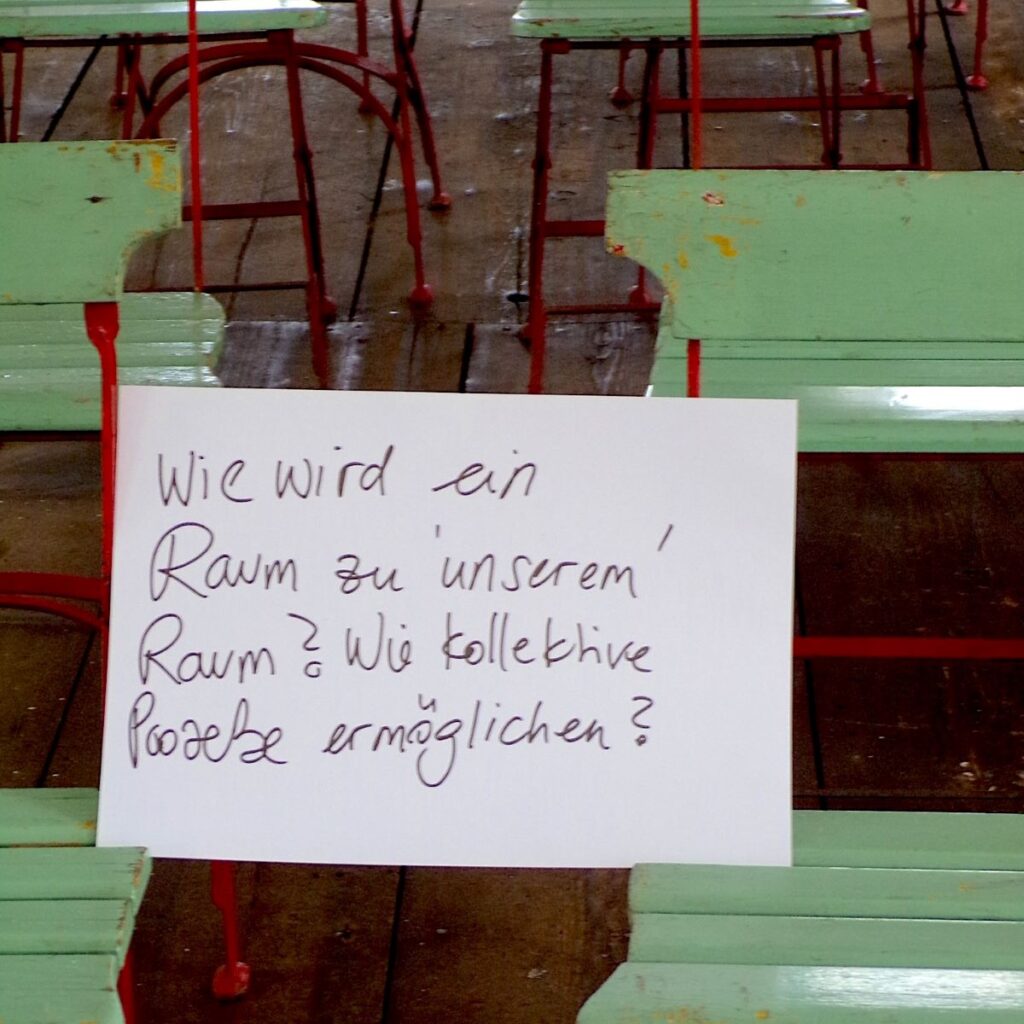 Wie wird ein
Raum zu 'unserem'
Raum? Wie kollektive
Prozeße ermöglichen?